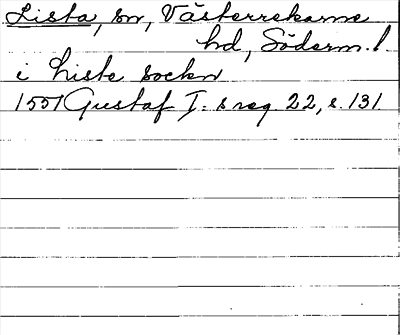 Lista, sn, Västerrekarne
hd, Söderm. l.
i Liste sockn
1551 Gustaf I:s reg. 22, s. 131